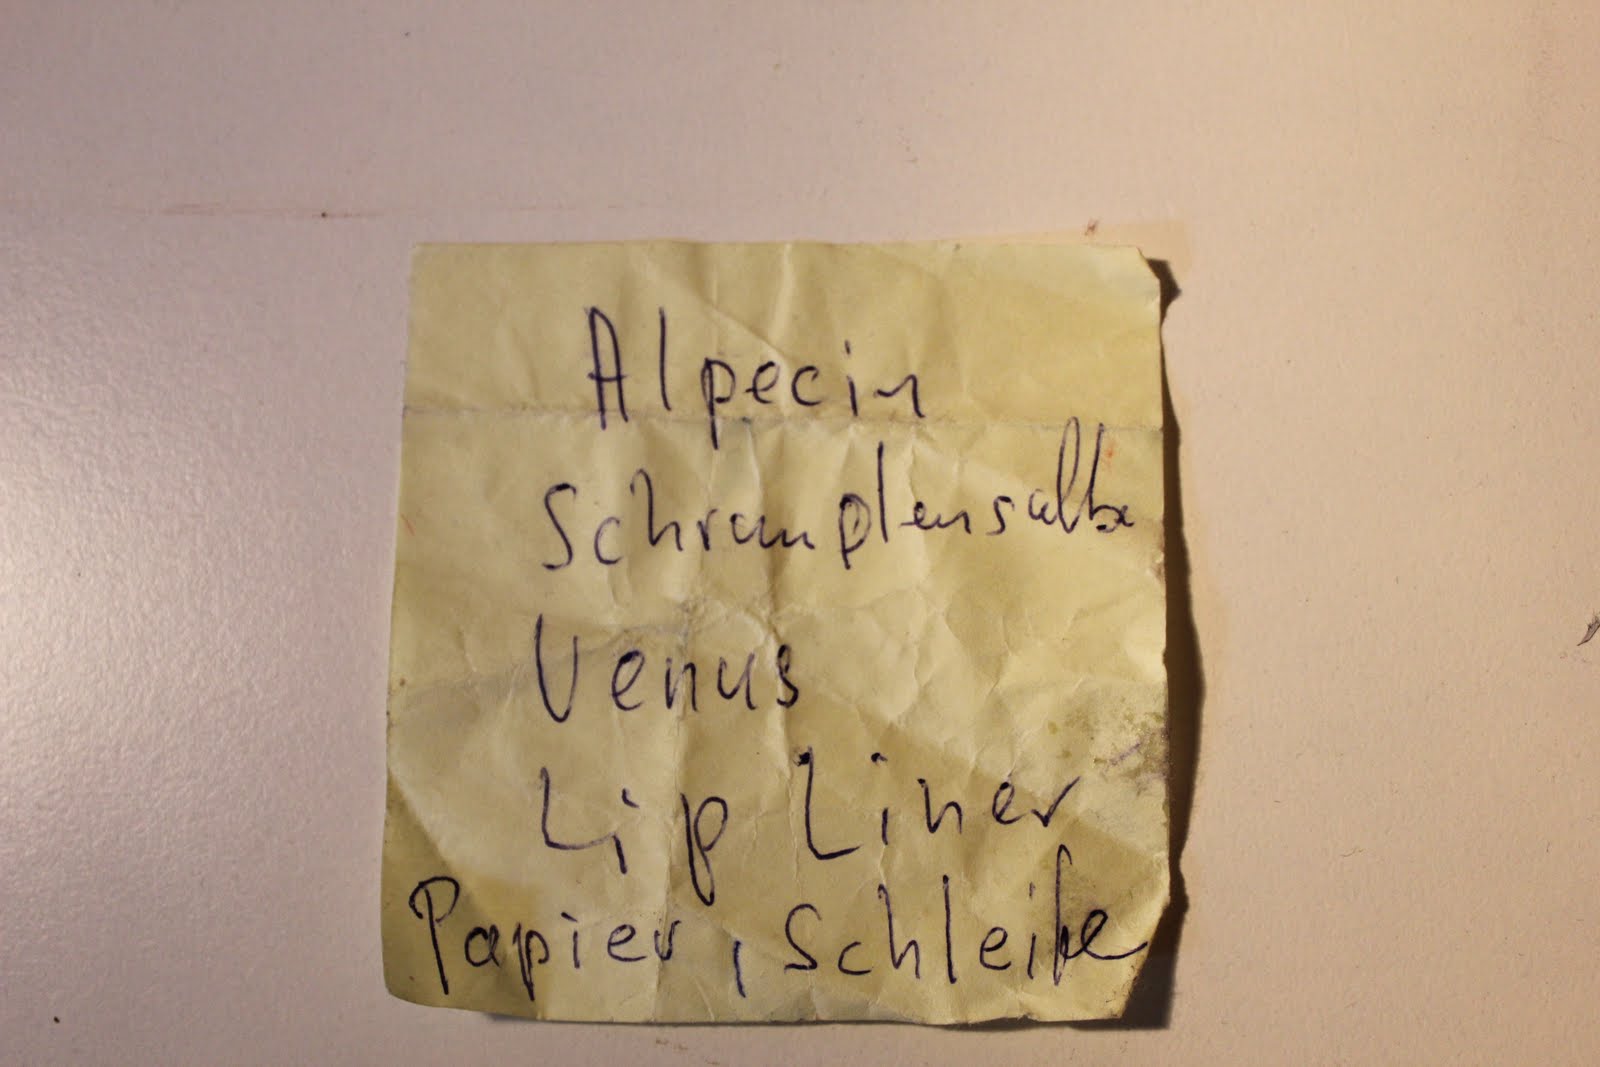 Alpecin
Schrumplensalbe
Venus
Lip Liner
Papier, Schleife